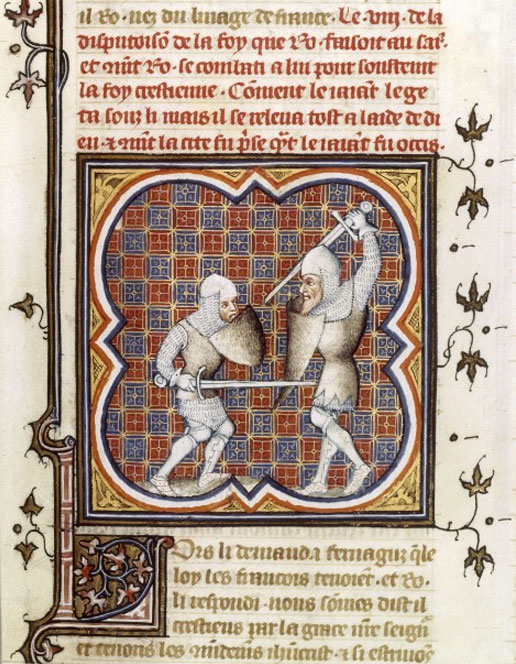 il Ro. nez du linage de france. Le viij. de la
disputoisō de la foy que Ro. faisoit au sar.
et mīt Ro. se combati a lui pour soustenir
la foy crestienne. Cōment le iaiant le ge
ta souz li mais il se releua tost a laide de di
eu. ⁊ mīt la cite fu p̄se q̄t le iaiant fu occis.
Ors li demanda fernaguz q̄le
loy les francois tenoiēt. et Ro.
li respondi. nous sōmes dist il
crestiens par la grace nr̄e seign̄
et tenons les